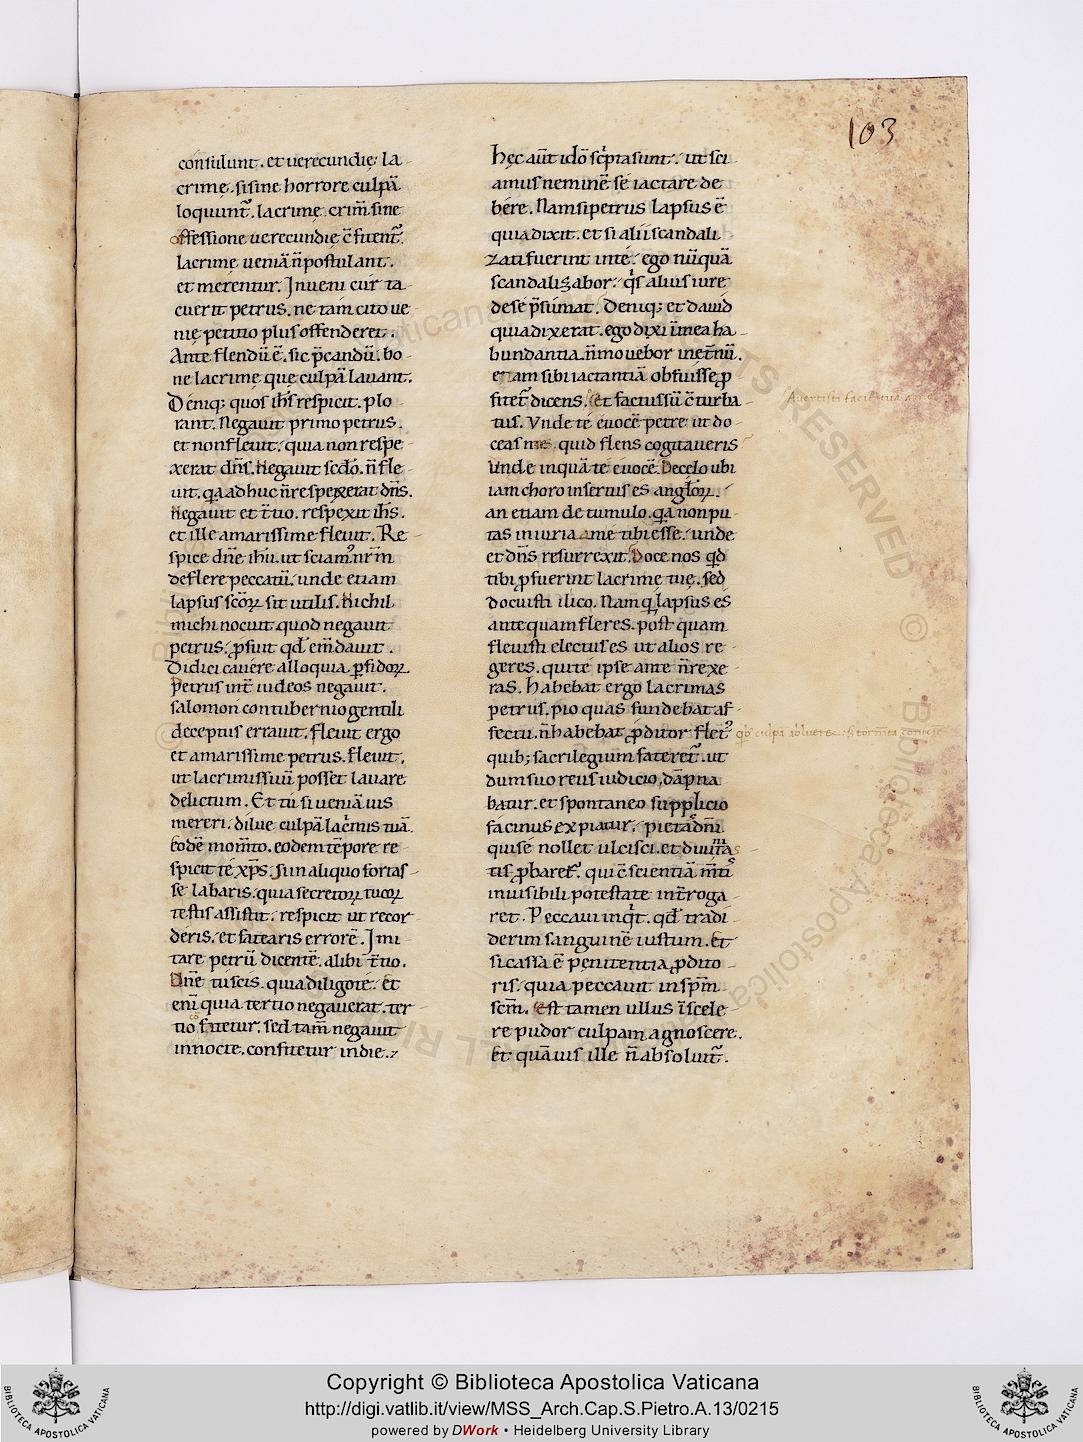 103
consulunt. et uerecundię; la
crimę. si sine horrore culpā
loquunt᷑. lacrimę crim̄ sine
offessione uerecundię c̄fitent᷑.
lacrimę ueniā n̄ postulant.
et merentur. Inueni cur ta
cuerit petrus. ne tam cito ue
nię petitio plus offenderet.
Ante flendū ē. sic p̄candū. bo
ne lacrimę que culpā lauant.
Deniq; quos ih̄s respicit. plo
rant. Negauit primo petrus.
et non fleuit. quia non respe
xerat dn̄s. Negauit scdo. n̄ fle
uit. qa adhuc n̄ respexerat dn̄s.
Negauit et t̄tio. respexit ih̄s.
et ille amarissime fleuit. Re
spice dn̄e ihu. ut sciam᷒ nr̄m
deflere peccatū. unde etiam
lapsus scōꝝ sit utilis. Nichil
michi nocuit quod negauit
petrus. ꝓfuit qd̄ em̄dauit.
Didici cauere alloquia ꝑfidoꝝ
Petrus int̄ iudeos negauit.
salomon contubernio gentili
deceptus errauit. fleuit ergo
et amarissime petrus. fleuit.
ut lacrimis suū posset lauare
delictum. Et tu si ueniā uis
mereri. dilue culpā lacmis tuā.
Eodē mom̄to. eodem tēpore re
spicit te xp̄s. si in aliquo fortas
se labaris. quia secretoꝝ tuoꝝ
testis assistit. respicit ut recor
deris. et fatearis errorē. Imi
tare petrū dicentē. alibi t̄tio.
Dn̄e tu scis. quia diligo te. Et
enī quia tertio negauerat. ter
tio cofitetur. sed tam̄ negauit
in nocte. confitetur in die.
Hęc aūt idō scpta sunt. ut sci
amus neminē se iactare de
bere. Nam si petrus lapsus ē
quia dixit. et si alii scandali
zati fuerint in te. ego nūquā
scandalizabor. qs alius iure
de se p̄sumat. Deniq; et dauid
quia dixerat. ego dixi ī mea ha
bundantia. n̄ mouebor inet̄nū.
etiam sibi iactantiā obfuisse ꝓ
fitet᷑ dicens. Et factus sū c̄turba
tus. Unde te euocē petre ut do
ceas me. quid flens cogitaueris
Unde inquā te euocē. De celo ubi
iam choro insertus es angloꝝ.
an etiam de tumulo. qa non pu
tas iniuria a me tibi esse. unde
et dn̄s resurrexit. Doce nos qd
tibi ꝓfuerint lacrimę tuę. sed
docuisti ilico. Nam q lapsus es
ante quam fleres. post quam
fleuisti electus es ut alios re
geres. qui te ipse ante n̄ rexe
ras. Habebat ergo lacrimas
petrus. pio quas fundebat af
fectu. n̄ habebat ꝓditor flet᷒
quib; sacrilegium fateret᷑. ut
dum suo reus iudicio dāpna
batur. et spontaneo supplicio
facinus expiatur. pietadn̄i
qui se nollet ulcisci. et diuinita
tis ꝓbaret᷑. qui c̄scientiā m̄ti᷒
inuisibili potestate int̄roga
ret. Peccaui inqt. qd̄ tradi
derim sanguinē iustum. Et
si cassa ē penitentia ꝓdito
ris. quia peccauit in spm̄
scm̄. Est tamen ullus ī scele
re pudor culpam agnoscere.
Et quāuis ille n̄ absoluit᷑.
Avertisti faciē tuā a me
qb᷒ culpā abluere
Copyright © Biblioteca Apostolica Vaticana
http://digi.vatlib.it/view/MSS_Arch.Cap.S.Pietro.A.13/0215
powered by DWork • Heidelberg University Library
BIBLIOTECA APOSTOLICA VATICANA
BIBLIOTECA APOSTOLICA VATICANA